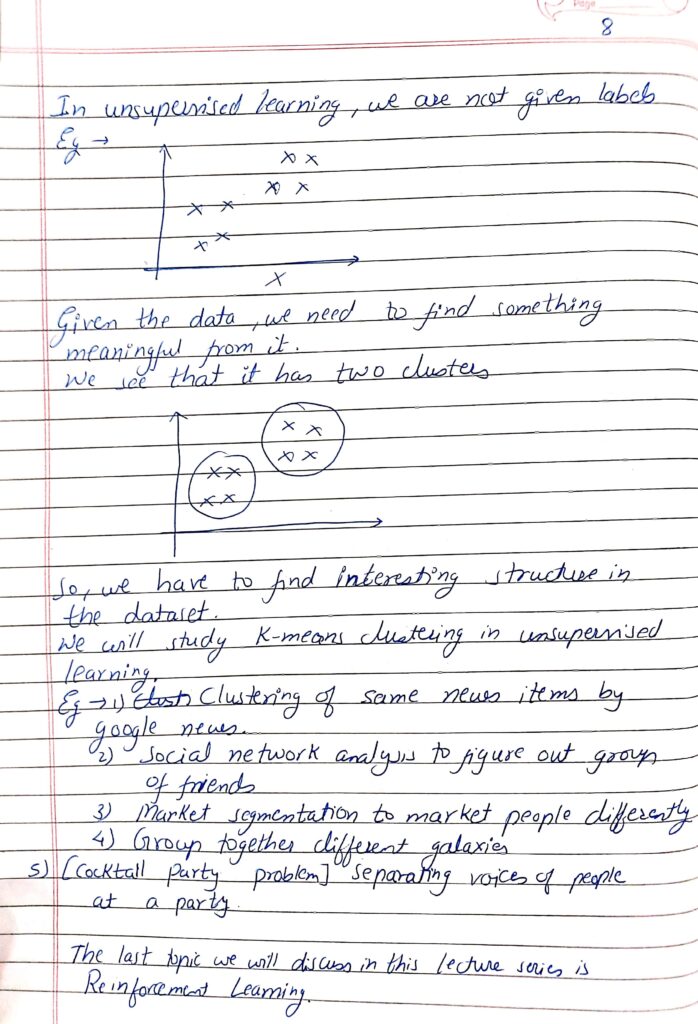 Page
8
In unsupervised learning, we are not given labels
Eg →
X
Given the data, we need to find something
meaningful from it.
We see that it has two clusters
So, we have to find interesting structure in
the dataset.
We will study K-means clustering in unsupervised
learning.
Eg → 1) Clustering of same news items by
google news.
2) Social network analysis to figure out group
of friends
3) Market segmentation to market people differently
4) Group together different galaxies
5) [Cocktail Party problem] Separating voices of people
at a party.
The last topic we will discuss in this lecture series is
Reinforcement Learning.